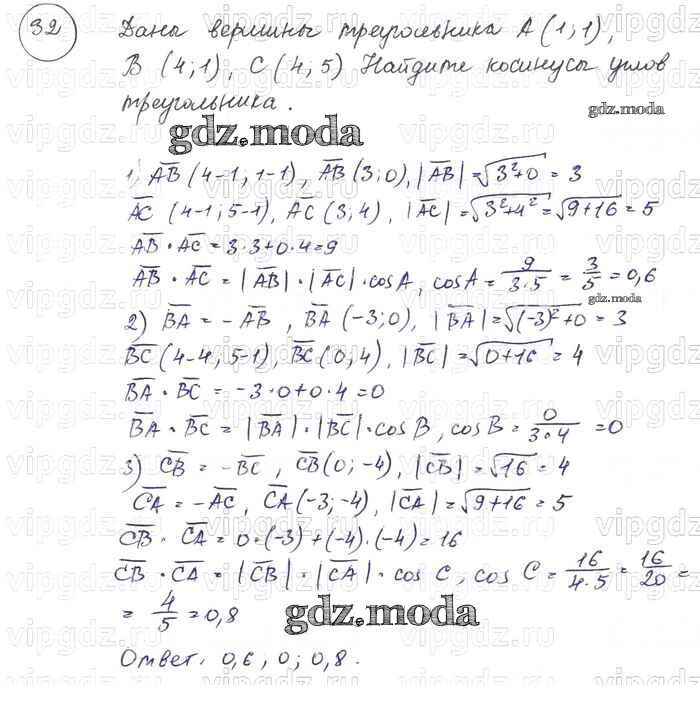 32
Даны вершины треугольника A(1;1),
B (4;1), C(4;5) Найдите косинусы углов
треугольника.
gdz.moda
gdz.moda
1) AB̅ (4-1; 1-1), AB̅ (3;0), |AB̅| = √(3²+0) = 3
AC̅ (4-1; 5-1), AC̅ (3;4), |AC̅| = √(3²+4²) = √(9+16) = 5
AB̅ · AC̅ = 3·3+0·4=9
AB̅ · AC̅ = |AB̅|·|AC̅|·cosA, cosA = 9/(3·5) = 3/5 = 0,6
gdz.moda
2) BA̅ = -AB̅, BA̅ (-3;0), |BA̅| = √((-3)²+0) = 3
BC̅ (4-4; 5-1), BC̅ (0;4), |BC̅| = √(0+16) = 4
BA̅ · BC̅ = -3·0+0·4=0
BA̅ · BC̅ = |BA̅|·|BC̅|·cosB, cosB = 0/(3·4) = 0
3) CB̅ = -BC̅, CB̅ (0; -4), |CB̅| = √16 = 4
CA̅ = -AC̅, CA̅ (-3; -4), |CA̅| = √(9+16) = 5
CB̅ · CA̅ = 0·(-3)+(-4)·(-4)=16
CB̅ · CA̅ = |CB̅|·|CA̅|·cos C, cos C = 16/(4·5) = 16/20 =
= 4/5 = 0,8
gdz.moda
Ответ. 0,6; 0; 0,8.